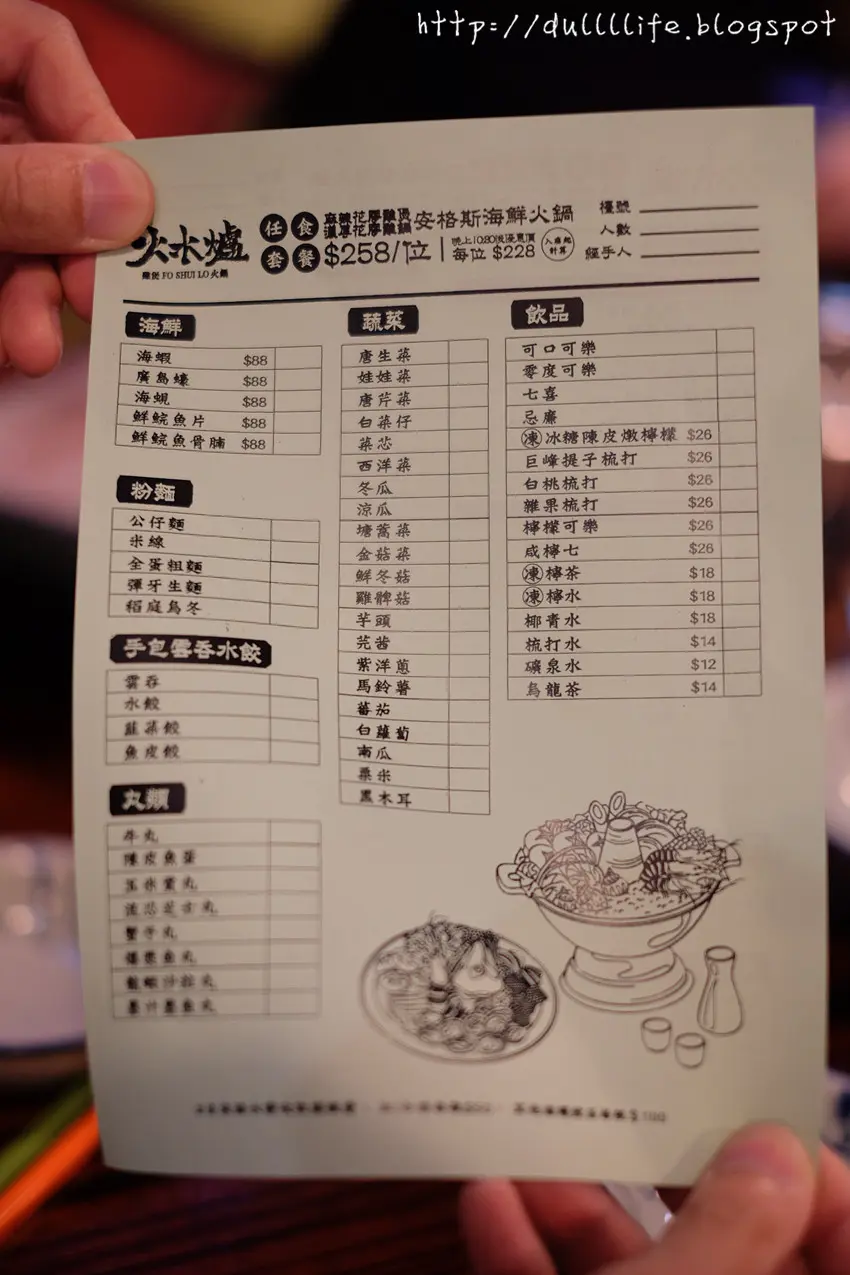 http://dullllife.blogspot
火水爐
雞煲 FO SHUI LO 火鍋
任食套餐
麻辣花膠雞煲
安格斯海鮮火鍋
$258/位
每位 $228
入座起計算
檯號
人數
經手人
海鮮
海蝦 $88
廣島蠔 $88
海蜆 $88
鮮鯇魚片 $88
鮮鯇魚骨腩 $88
粉麵
公仔麵
米線
全蛋粗麵
彈牙生麵
稻庭烏冬
手包雲吞水餃
雲吞
水餃
韮菜餃
魚皮餃
丸類
牛丸
陳皮魚蛋
蟹子丸
墨汁墨魚丸
蔬菜
唐生菜
娃娃菜
唐芹菜
白菜仔
菜芯
西洋菜
冬瓜
涼瓜
塘蒿菜
金菇菜
鮮冬菇
雞髀菇
芋頭
芫茜
紫洋蔥
馬鈴薯
蕃茄
白蘿蔔
南瓜
粟米
黑木耳
飲品
可口可樂
零度可樂
七喜
忌廉
凍冰糖陳皮燉檸檬 $26
巨峰提子梳打 $26
白桃梳打 $26
雜果梳打 $26
檸檬可樂 $26
咸檸七 $26
凍檸茶 $18
凍檸水 $18
椰青水 $18
梳打水 $14
礦泉水 $12
烏龍茶 $14